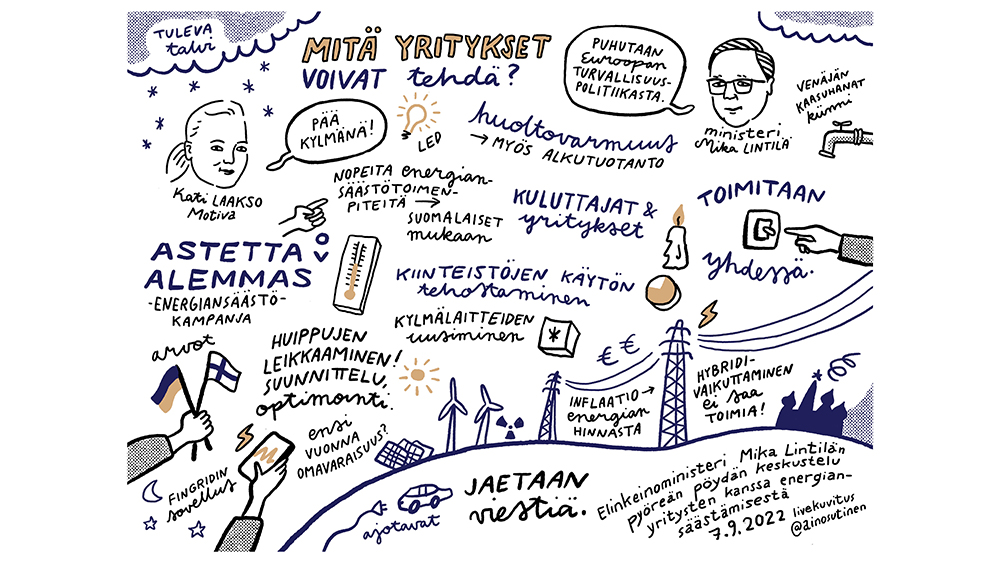 TULEVA
talvi
MITÄ YRITYKSET
VOIVAT tehdä?
PUHUTAAN
Euroopan
TURVALLISUUS-
POLITIIKASTA.
VENÄJÄN
KAASUHANAT
kiinni
ministeri
Mika LINTILÄ
PÄÄ
KYLMÄNÄ!
LED
huoltovarmuus
→ MYÖS ALKUTUOTANTO
Kati LAAKSO
Motiva
NOPEITA energian-
SÄÄSTÖTOIMEN-
PITEITÄ →
SUOMALAISET
mukaan
KULUTTAJAT &
yritykset
TOIMITAAN
yhdessä.
ASTETTA
ALEMMAS
-ENERGIANSÄÄSTÖ-
KAMPANJA
KIINTEISTÖJEN KÄYTÖN
tehostaminen
KYLMÄLAITTEIDEN
uusiminen
arvot
HUIPPUJEN
LEIKKAAMINEN!
SUUNNITTELU,
optimointi.
€ €
INFLAATIO →
energian
HINNASTA
HYBRIDI-
VAIKUTTAMINEN
ei saa
TOIMIA!
ensi
VUONNA
OMAVARAISUUS?
FINGRIDIN
sovellus
ajotavat
JAETAAN
viestiä.
Elinkeinoministeri Mika Lintilän
pyöreän pöydän keskustelu
yritysten kanssa energian-
säästämisestä
7.9.2022 livekuvitus
@ainosutinen